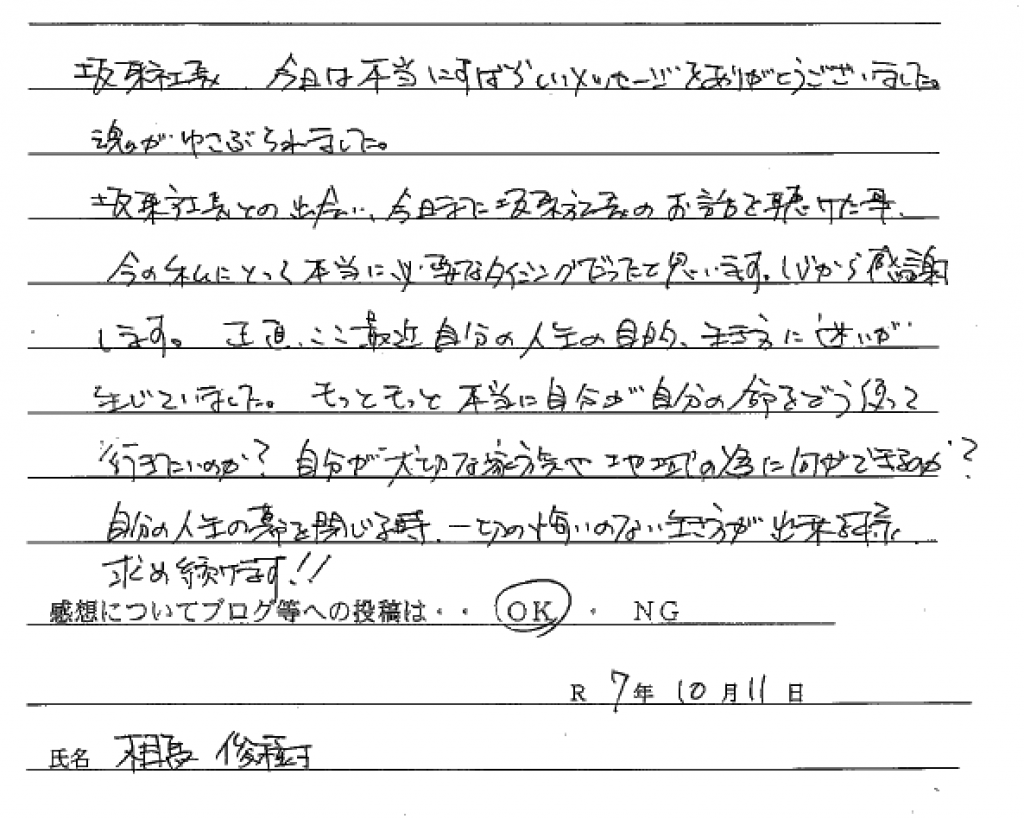 坂東社長、今日は本当にすばらしいメッセージをありがとうございました。
魂がゆさぶられました。
坂東社長との出会い、今日また坂東社長のお話を聴けた事、
今の私にとって本当に必要なタイミングだったと思います。心から感謝
します。 正直、ここ最近自分の人生の目的、生き方に迷いが
生じていました。 もっともっと本当に自分が自分の命をどう使って
行きたいのか？ 自分が大切な家族や地域の為に何ができるのか？
自分の人生の幕を閉じる時、一切の悔いのない生き方が出来る様に
求め続けます!!
感想についてブログ等への投稿は・・ OK ・ NG
R 7年 10月 11日
氏名 相長 俊